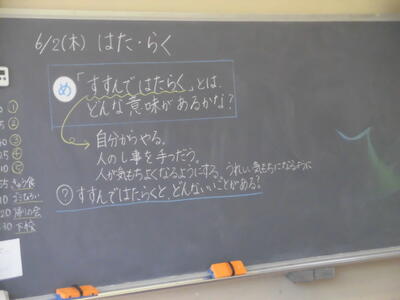 6/2(木) はた・らく
め 「すすんではたらく」とは、
どんな意味があるかな？
自分からやる。
人のし事を手つだう。
人が気もちよくなるようにする。うれしい気もちになるように
? すすんではたらくと、どんないいことがある？
①
②
③
④
⑤
給食
そうじ
20 帰りの会
30 下校